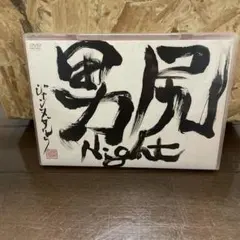 男尻
Night
ジャンヌダルク
DVD